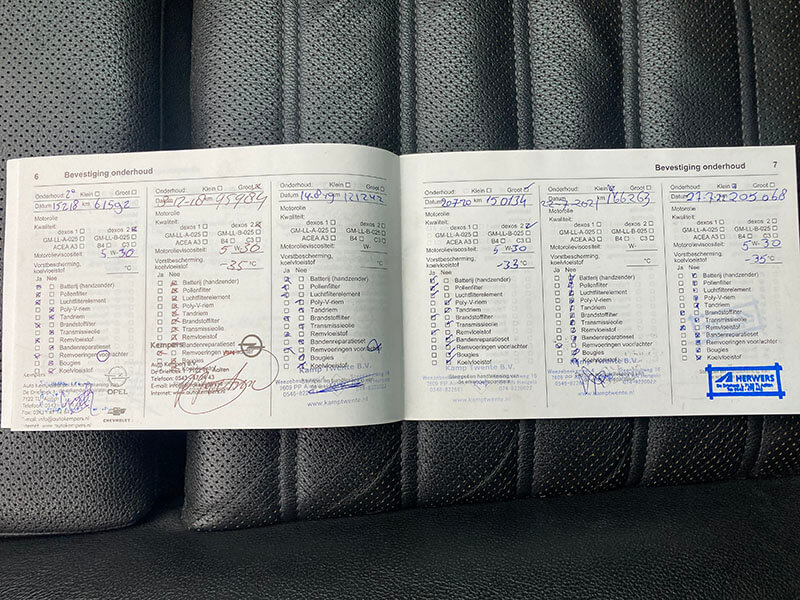 6 Bevestiging onderhoud
Onderhoud: 2e Klein Groot
Datum 15218 km 61592
Motorolie
Kwaliteit:
dexos 1 dexos 2
GM-LL-A-025 GM-LL-B-025
ACEA A3 B4 C3
Motorolieviscositeit: 5 W-30
Vorstbescherming, koelvloeistof °C
Ja Nee
Batterij (handzender)
Pollenfilter
Luchtfilterelement
Poly-V-riem
Tandriem
Brandstoffilter
Transmissieolie
Remvloeistof
Bandenreparatieset
Remvoeringen voor/achter
Bougies
Koelvloeistof
OPEL
CHEVROLET
Onderhoud: Klein Groot
Datum km 95984
Motorolie
Kwaliteit:
dexos 1 dexos 2
GM-LL-A-025 GM-LL-B-025
ACEA A3 B4 C3
Motorolieviscositeit: 5 W-30
Vorstbescherming, koelvloeistof -35 °C
Ja Nee
Batterij (handzender)
Pollenfilter
Luchtfilterelement
Poly-V-riem
Tandriem
Brandstoffilter
Transmissieolie
Remvloeistof
Bandenreparatieset
Remvoeringen
Bougies
Kempers
Onderhoud: Klein Groot
Datum 14-8-19 km 121242
Motorolie
Kwaliteit:
dexos 1 dexos 2
GM-LL-A-025 GM-LL-B-025
ACEA A3 B4 C3
Motorolieviscositeit: W-
Vorstbescherming, koelvloeistof °C
Ja Nee
Batterij (handzender)
Pollenfilter
Luchtfilterelement
Poly-V-riem
Tandriem
Brandstoffilter
Transmissieolie
Remvloeistof
Bandenreparatieset
Remvoeringen voor/achter
Bougies
Koelvloeistof
Kamp Twente B.V.
www.kamptwente.nl
Bevestiging onderhoud 7
Onderhoud: Klein Groot
Datum 20720 km 150134
Motorolie
Kwaliteit:
dexos 1 dexos 2
GM-LL-A-025 GM-LL-B-025
ACEA A3 B4 C3
Motorolieviscositeit: 5 W-30
Vorstbescherming, koelvloeistof -33 °C
Ja Nee
Batterij (handzender)
Pollenfilter
Luchtfilterelement
Poly-V-riem
Tandriem
Brandstoffilter
Transmissieolie
Remvloeistof
Bandenreparatieset
Remvoeringen voor/achter
Bougies
Koelvloeistof
Kamp Twente B.V.
www.kamptwente.nl
Onderhoud: Klein Groot
Datum km 166263
Motorolie
Kwaliteit:
dexos 1 dexos 2
GM-LL-A-025 GM-LL-B-025
ACEA A3 B4 C3
Motorolieviscositeit: W-
Vorstbescherming, koelvloeistof °C
Ja Nee
Batterij (handzender)
Pollenfilter
Luchtfilterelement
Poly-V-riem
Tandriem
Brandstoffilter
Transmissieolie
Remvloeistof
Bandenreparatieset
Remvoeringen voor/achter
Bougies
Koelvloeistof
Kamp Twente B.V.
www.kamptwente.nl
Onderhoud: Klein Groot
Datum 27-7-22 205.068
Motorolie
Kwaliteit:
dexos 1 dexos 2
GM-LL-A-025 GM-LL-B-025
ACEA A3 B4 C3
Motorolieviscositeit: 5 W-30
Vorstbescherming, koelvloeistof -35 °C
Ja Nee
Batterij (handzender)
Pollenfilter
Luchtfilterelement
Poly-V-riem
Tandriem
Brandstoffilter
Transmissieolie
Remvloeistof
Bandenreparatieset
Remvoeringen voor/achter
Bougies
Koelvloeistof
HERWERS